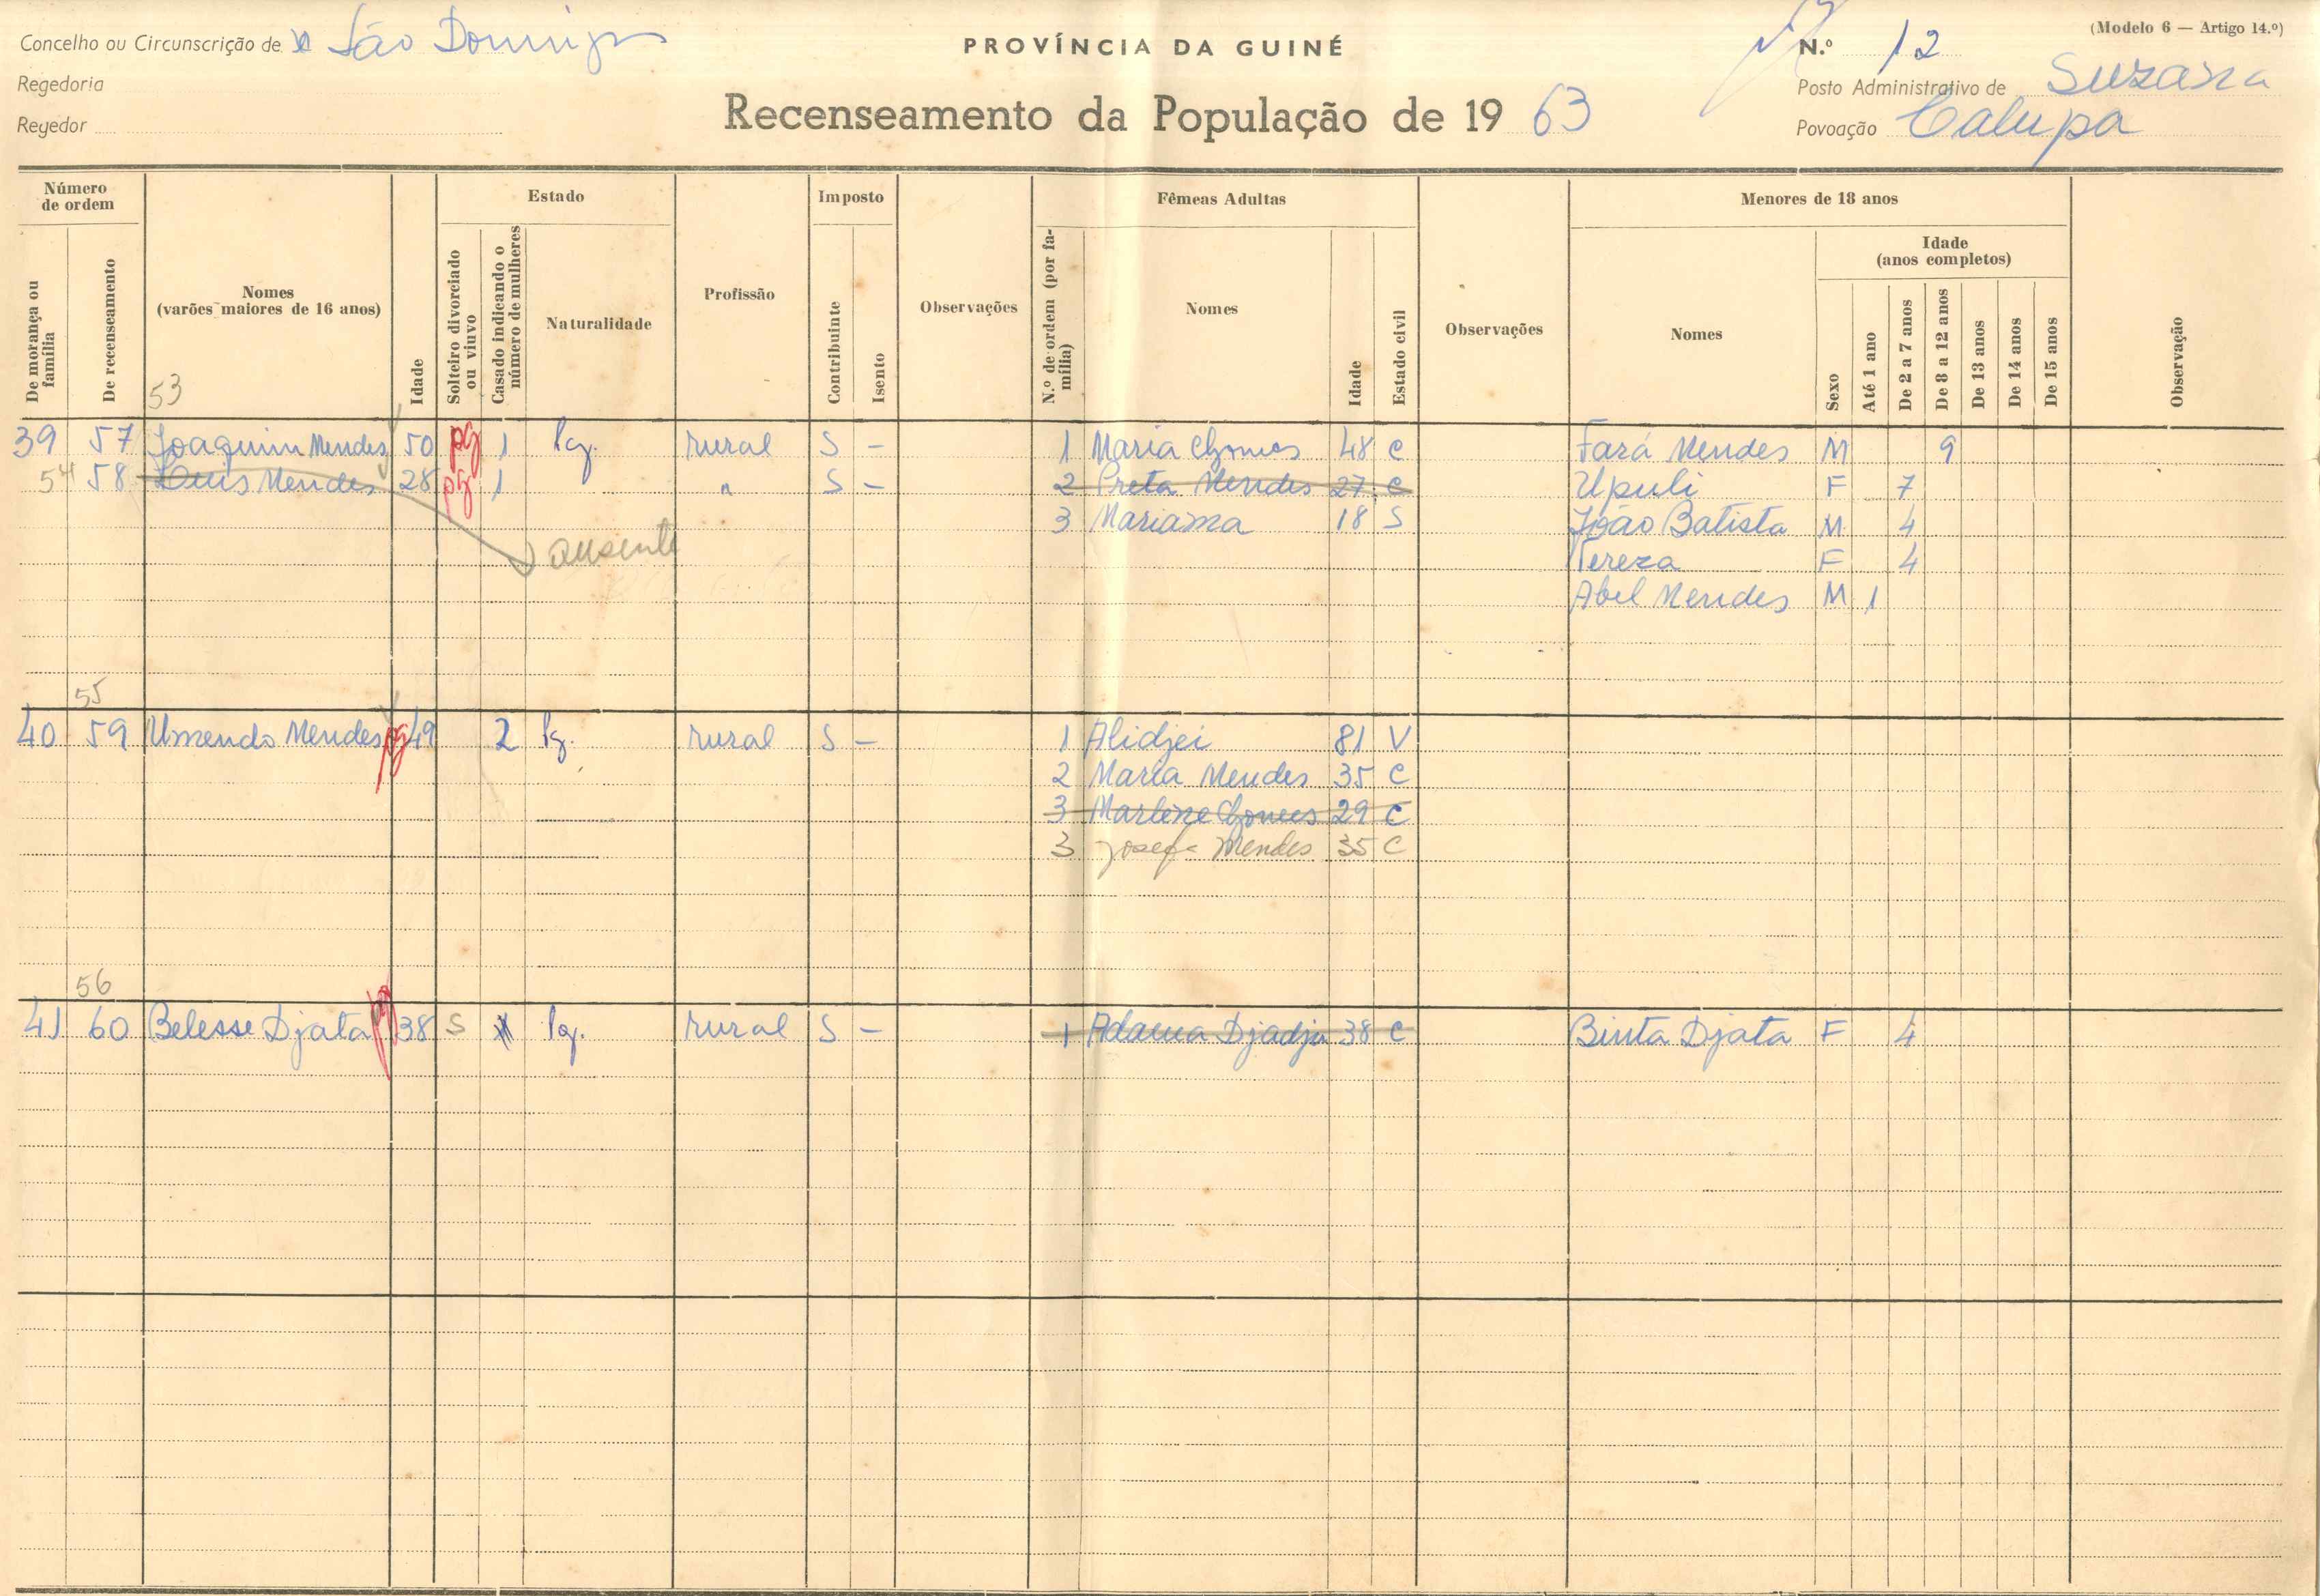 Concelho ou Circunscrição de São Domingos
PROVÍNCIA DA GUINÉ
N.º 12
(Modelo 6 — Artigo 14.º)
Regedoria
Posto Administrativo de Suzana
Regedor
Recenseamento da População de 1963
Povoação Calupa
Número de ordem
De morança ou família
De recenseamento
Nomes
(varões maiores de 16 anos)
Idade
Estado
Solteiro divorciado ou viuvo
Casado indicando o número de mulheres
Naturalidade
Profissão
Imposto
Contribuinte
Isento
Observações
Fêmeas Adultas
N.º de ordem (por família)
Nomes
Idade
Estado civil
Observações
Menores de 18 anos
Nomes
Sexo
Idade
(anos completos)
Até 1 ano
De 2 a 7 anos
De 8 a 12 anos
De 13 anos
De 14 anos
De 15 anos
Observação
53
39 57 Joaquim Mendes 50 pg 1 lg. rural S — 1 Maria Gomes 48 C Fará Mendes M 9
54 58 Luis Mendes 28 pg 1 " S — 2 Preta Mendes 27 C Upuli F 7
3 Mariama 18 S João Batista M 4
ausente
Tereza F 4
Abel Mendes M 1
55
40 59 Umendo Mendes pg 49 2 lg. rural S — 1 Alidjei 81 V
2 Maria Mendes 35 C
3 Marlene Gomes 29 C
3 Josefa Mendes 35 C
56
41 60 Belesse Djata pg 38 S lg. rural S — 1 Adama Djadju 38 C Binta Djata F 4